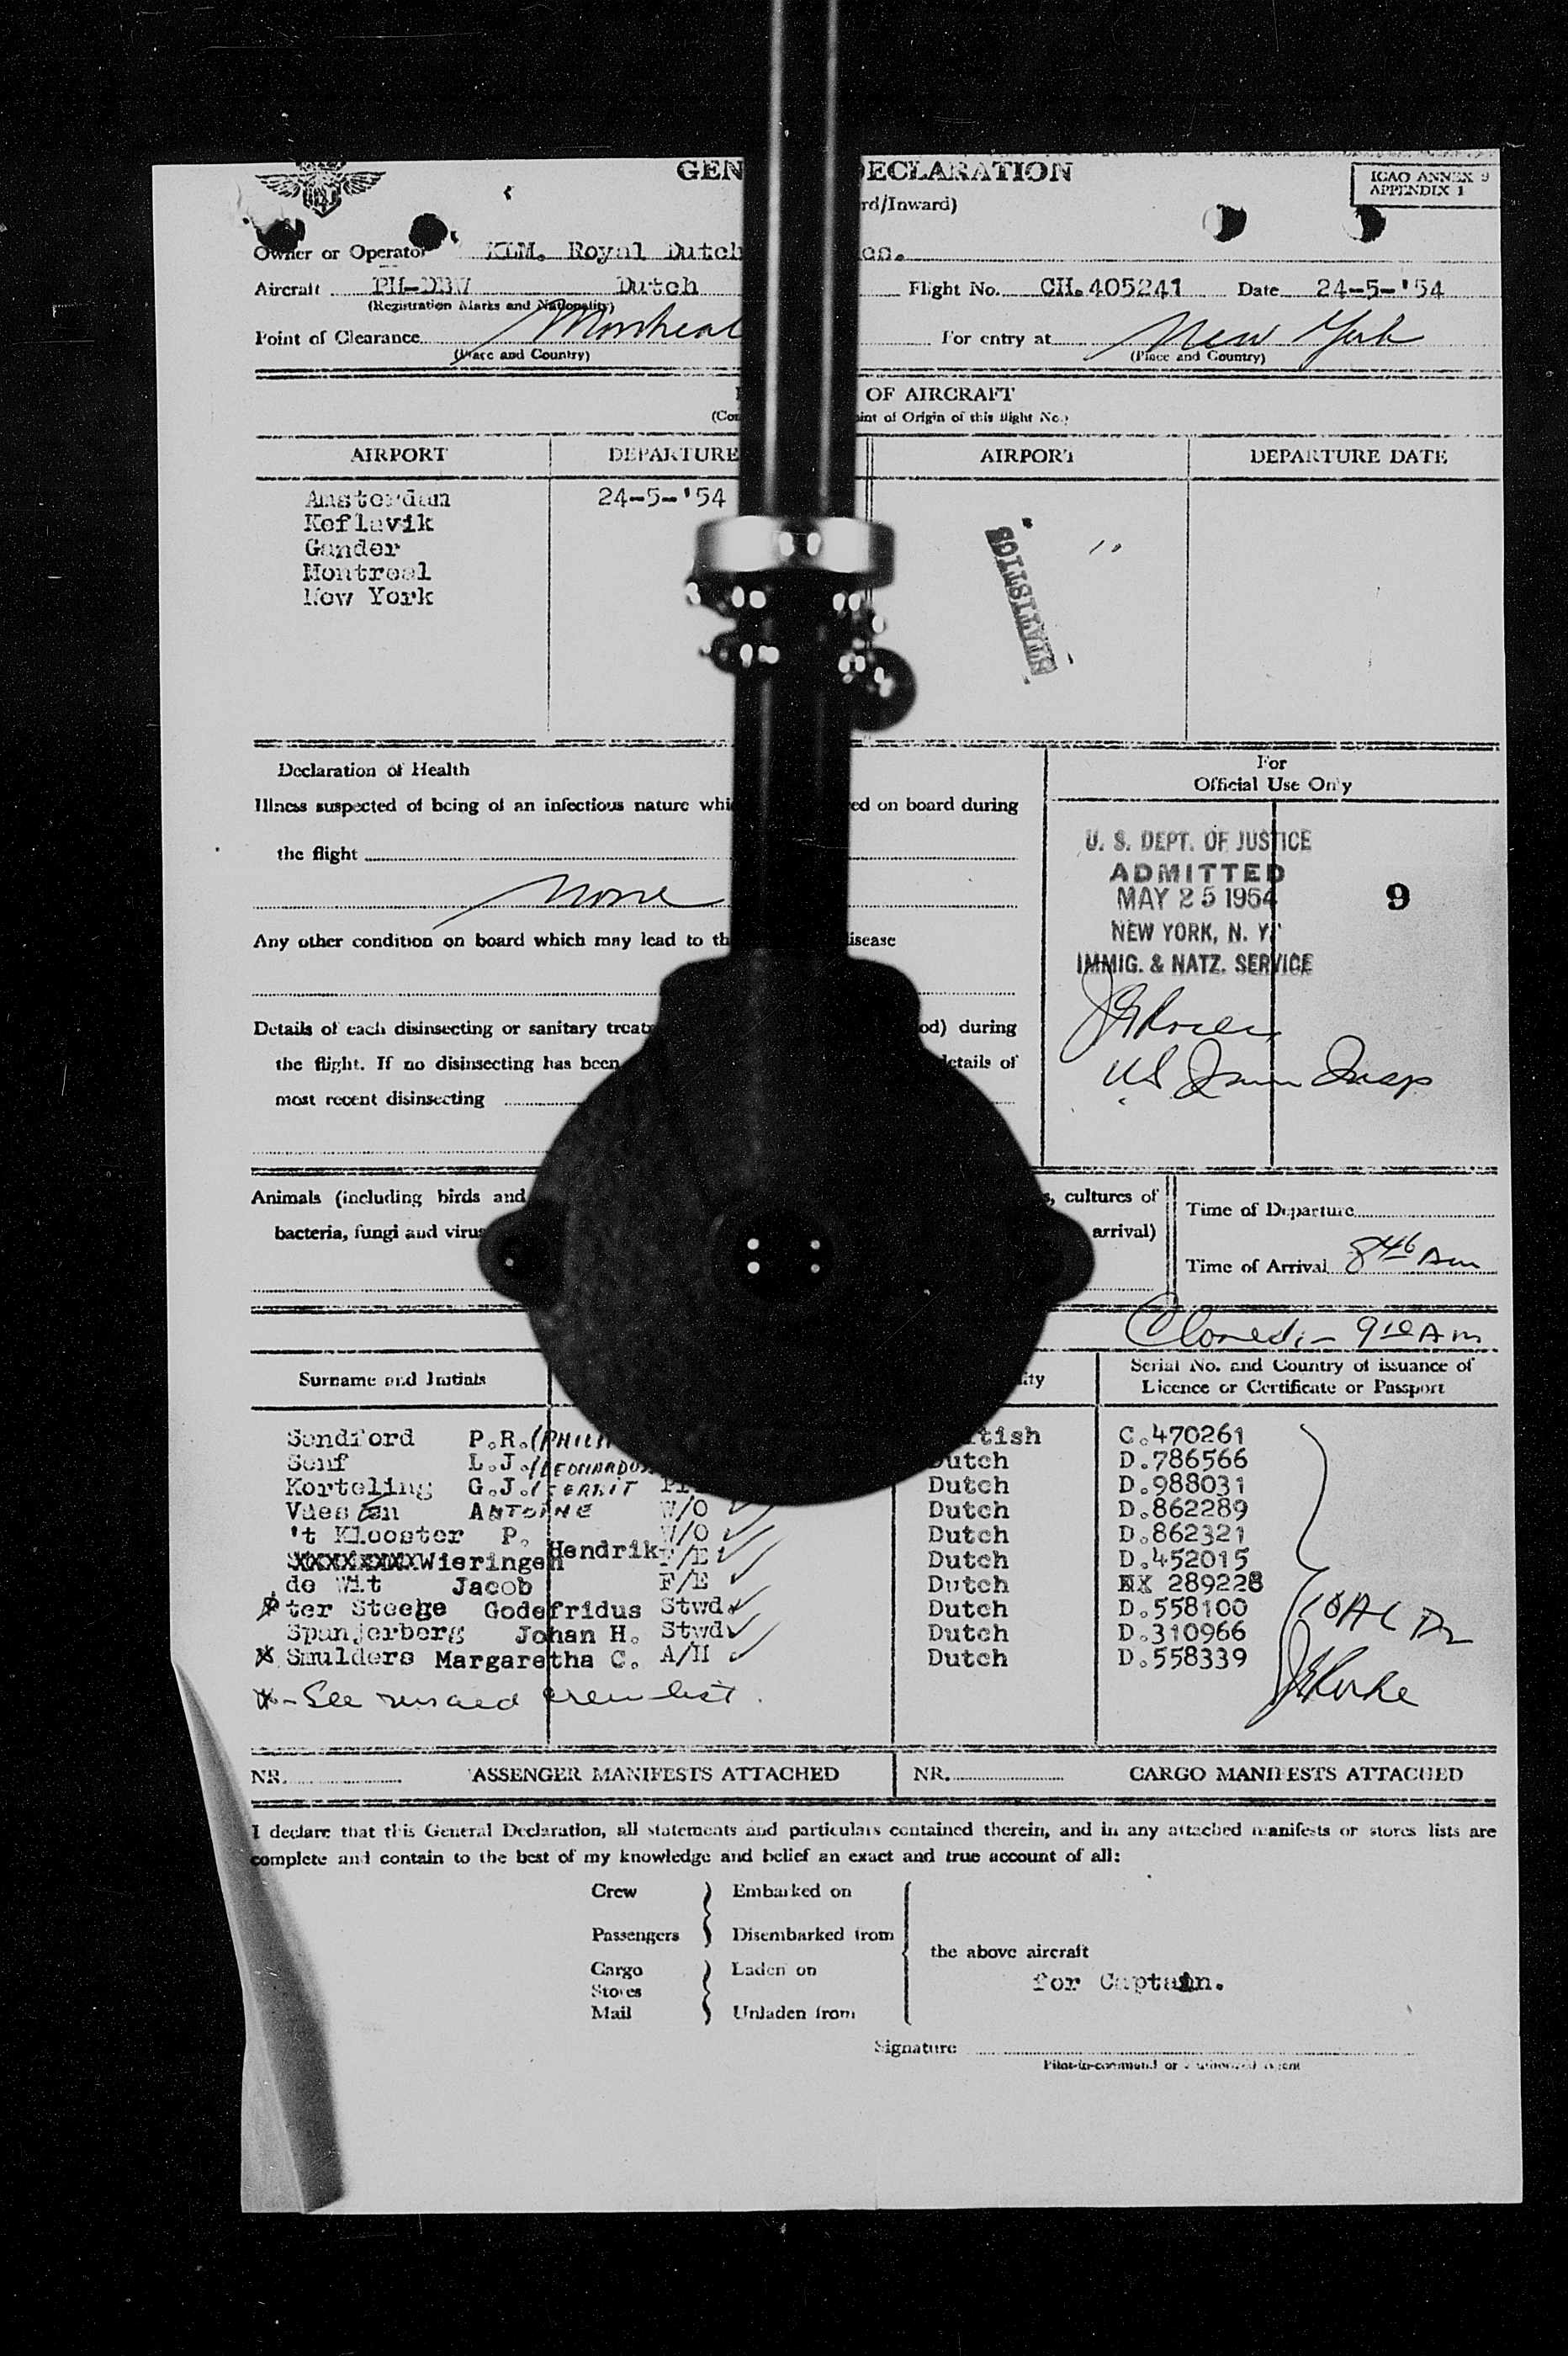 GEN ECLARATION
ICAO ANNEX 9
APPENDIX 1
rd/Inward)
Owner or Operator KLM. Royal Dutch es.
Aircraft PH-DBW Dutch Flight No. CH.405241 Date 24-5-'54
(Registration Marks and Nationality)
Point of Clearance Montreal For entry at New York
(Place and Country) (Place and Country)
OF AIRCRAFT
(Co int of Origin of this flight No.)
AIRPORT DEPARTURE AIRPORT DEPARTURE DATE
Amsterdam 24-5-'54
Keflavik
Gander
Montreal
New York
STATISTICS
Declaration of Health
For
Official Use Only
Illness suspected of being of an infectious nature whi ed on board during
the flight
None
U. S. DEPT. OF JUSTICE
ADMITTED
MAY 25 1954
NEW YORK, N. Y.
IMMIG. & NATZ. SERVICE
9
Any other condition on board which may lead to th isease
Details of each disinsecting or sanitary treat od) during
the flight. If no disinsecting has been details of
most recent disinsecting
US Imm Insp
Animals (including birds and s, cultures of
bacteria, fungi and virus arrival)
Time of Departure
Time of Arrival 8 46 Am
Closed:- 9 10 Am
Surname and Initials ity Serial No. and Country of issuance of
Licence or Certificate or Passport
Sandford P.R. (PHILI tish C.470261
Senf L.J. (LEONARDUS Dutch D.786566
Korteling G.J. (GERRIT Dutch D.988031
Vaessen ANTOINE W/O Dutch D.862289
't Klooster P. W/O Dutch D.862321
XXXXXXXXX Wieringen Hendrik F/E Dutch D.452015
de Wit Jacob F/E Dutch 289228
ter Steege Godefridus Stwd. Dutch D.558100
Spanjerberg Johan H. Stwd. Dutch D.310966
X Smulders Margaretha C. A/H Dutch D.558339
X - See revised crew list.
NR. ASSENGER MANIFESTS ATTACHED NR. CARGO MANIFESTS ATTACHED
I declare that this General Declaration, all statements and particulars contained therein, and in any attached manifests or stores lists are
complete and contain to the best of my knowledge and belief an exact and true account of all:
Crew Embarked on
Passengers Disembarked from
the above aircraft
Cargo Laden on
for Captain.
Stores
Mail Unladen from
Signature
Pilot-in-command or Authorized Agent